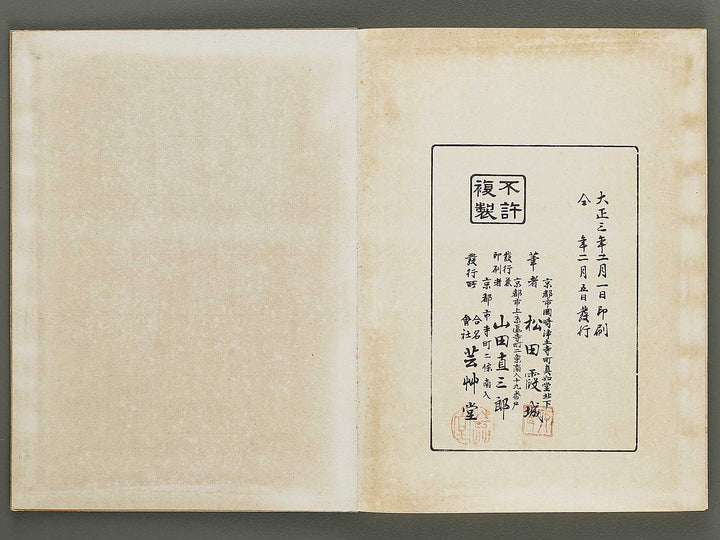 大正三年二月一日印刷
仝　年二月五日發行
不許
複製
筆者
松田霞城
發行兼
印刷者
京都市上京區寺町二條南入十九番戸
山田直三郎
發行所
京都市寺町二條南入
合名
會社
芸艸堂